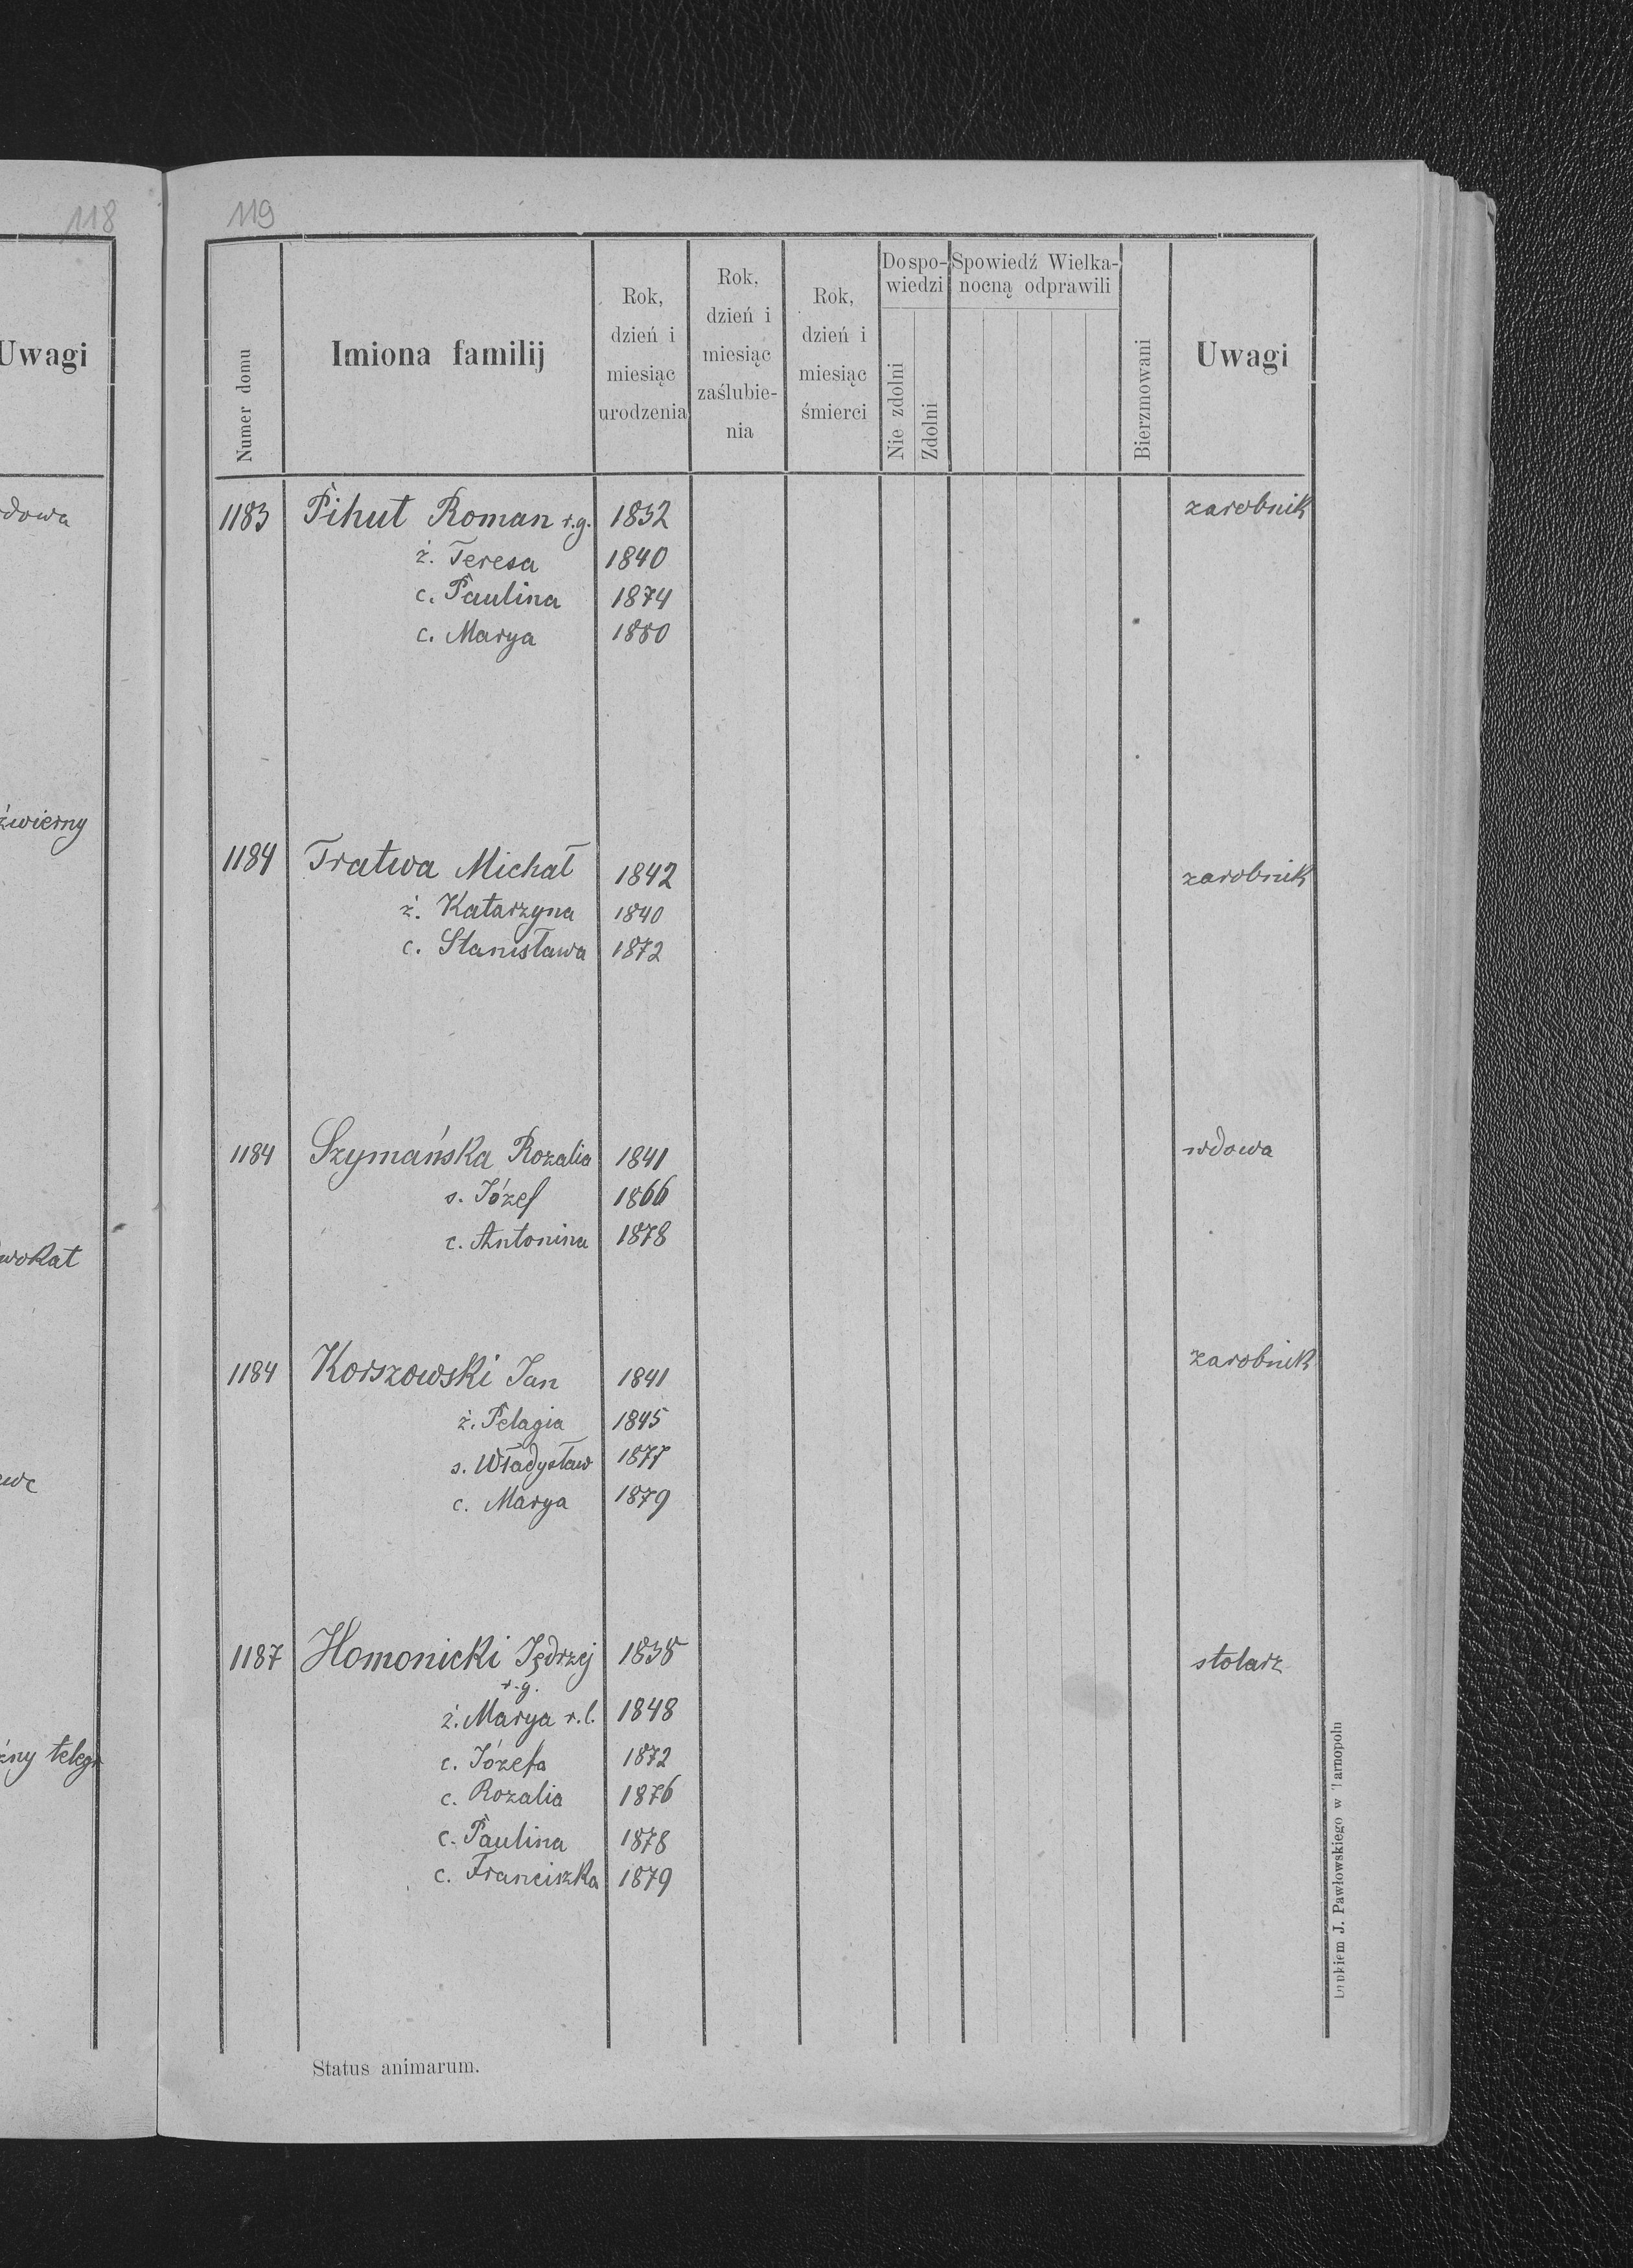 118
Uwagi
119
Numer domu
Imiona familij
Rok,
dzień i
miesiąc
urodzenia
Rok,
dzień i
miesiąc
zaślubie-
nia
Rok,
dzień i
miesiąc
śmierci
Do spo-
wiedzi
Nie zdolni
Zdolni
Spowiedź Wielka-
nocną odprawili
Bierzmowani
Uwagi
1183 Pihut Roman r.g. 1832 zarobnik
ż. Teresa 1840
c. Paulina 1874
c. Marya 1880
1184 Tratwa Michał 1842 zarobnik
ż. Katarzyna 1840
c. Stanisława 1872
1184 Szymańska Rozalia 1841 wdowa
s. Józef 1866
c. Antonina 1878
1184 Korszowski Jan 1841 zarobnik
ż. Pelagia 1845
s. Władysław 1877
c. Marya 1879
1187 Homonicki Jędrzej 1838 stolarz
r.g.
ż. Marya r.l. 1848
c. Józefa 1872
c. Rozalia 1876
c. Paulina 1878
c. Franciszka 1879
Status animarum.
Drukiem J. Pawłowskiego w Tarnopolu